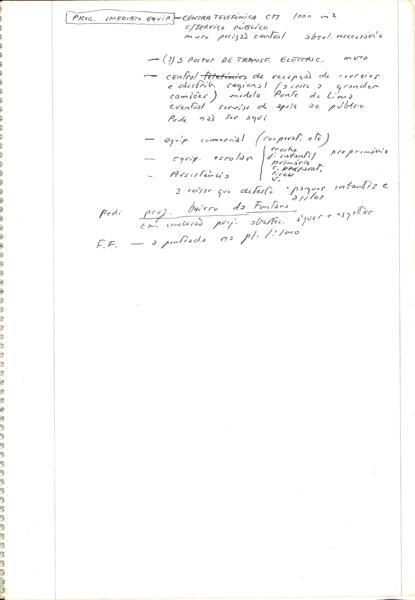 PROG. IMEDIATO EQUIP — CENTRAL TELEFÓNICA CTT 1000 m2
c/SERVIÇO PÚBLICO
muro posição central absol. necessário
— (?) 3 POSTOS DE TRANSF. ELÉCTRIC. muro
— central telefónica de recepção de correios
e distrib. regional (acesso a grandes
camiões) modelo Ponte de Lima
eventual serviso de apoio ao público
Pode não ser aqui
— equip. comercial (cooperat. etc)
— equip. escolar creche
j. infantis preprimário
primária
c. preparat.
liceu
— Assistência
2 coisas que detesto parques infantis e
asilos
Pedi proj. bairro da Fontana
Em conclusão proj. abastec. águas e esgotos
F.F. — no pl. 1:1000